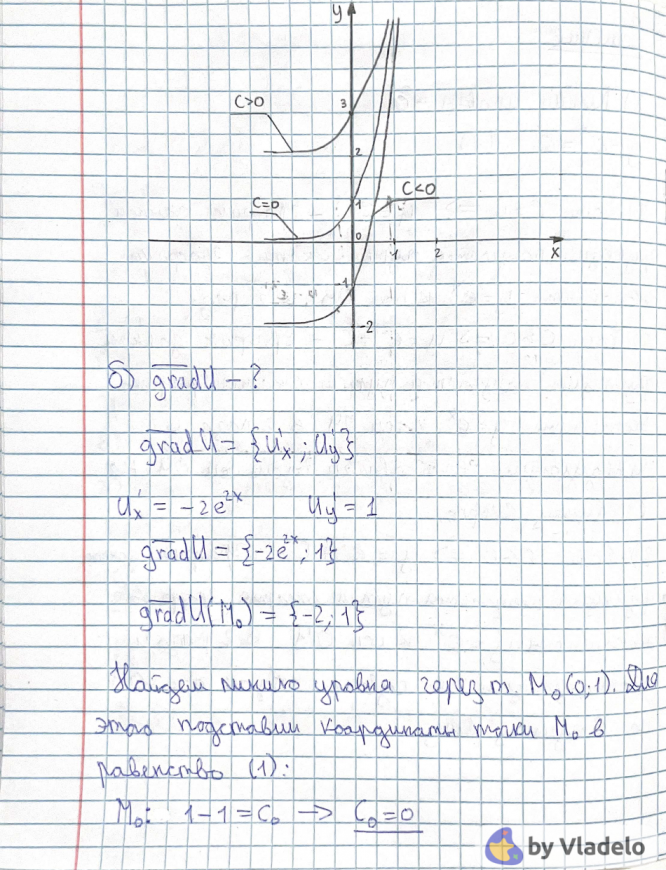 y
C>0
3
2
C<0
C=0
1
0
1
2
x
-1
-2
б) gradU - ?
gradU = {U'x ; U'y}
U'x = -2e^2x U'y = 1
gradU = {-2e^2x ; 1}
gradU(M₀) = {-2; 1}
Найдем линию уровня через т. M₀(0;1). Для
этого подставим координаты точки M₀ в
равенство (1):
M₀: 1-1=C₀ → C₀=0
by Vladelo